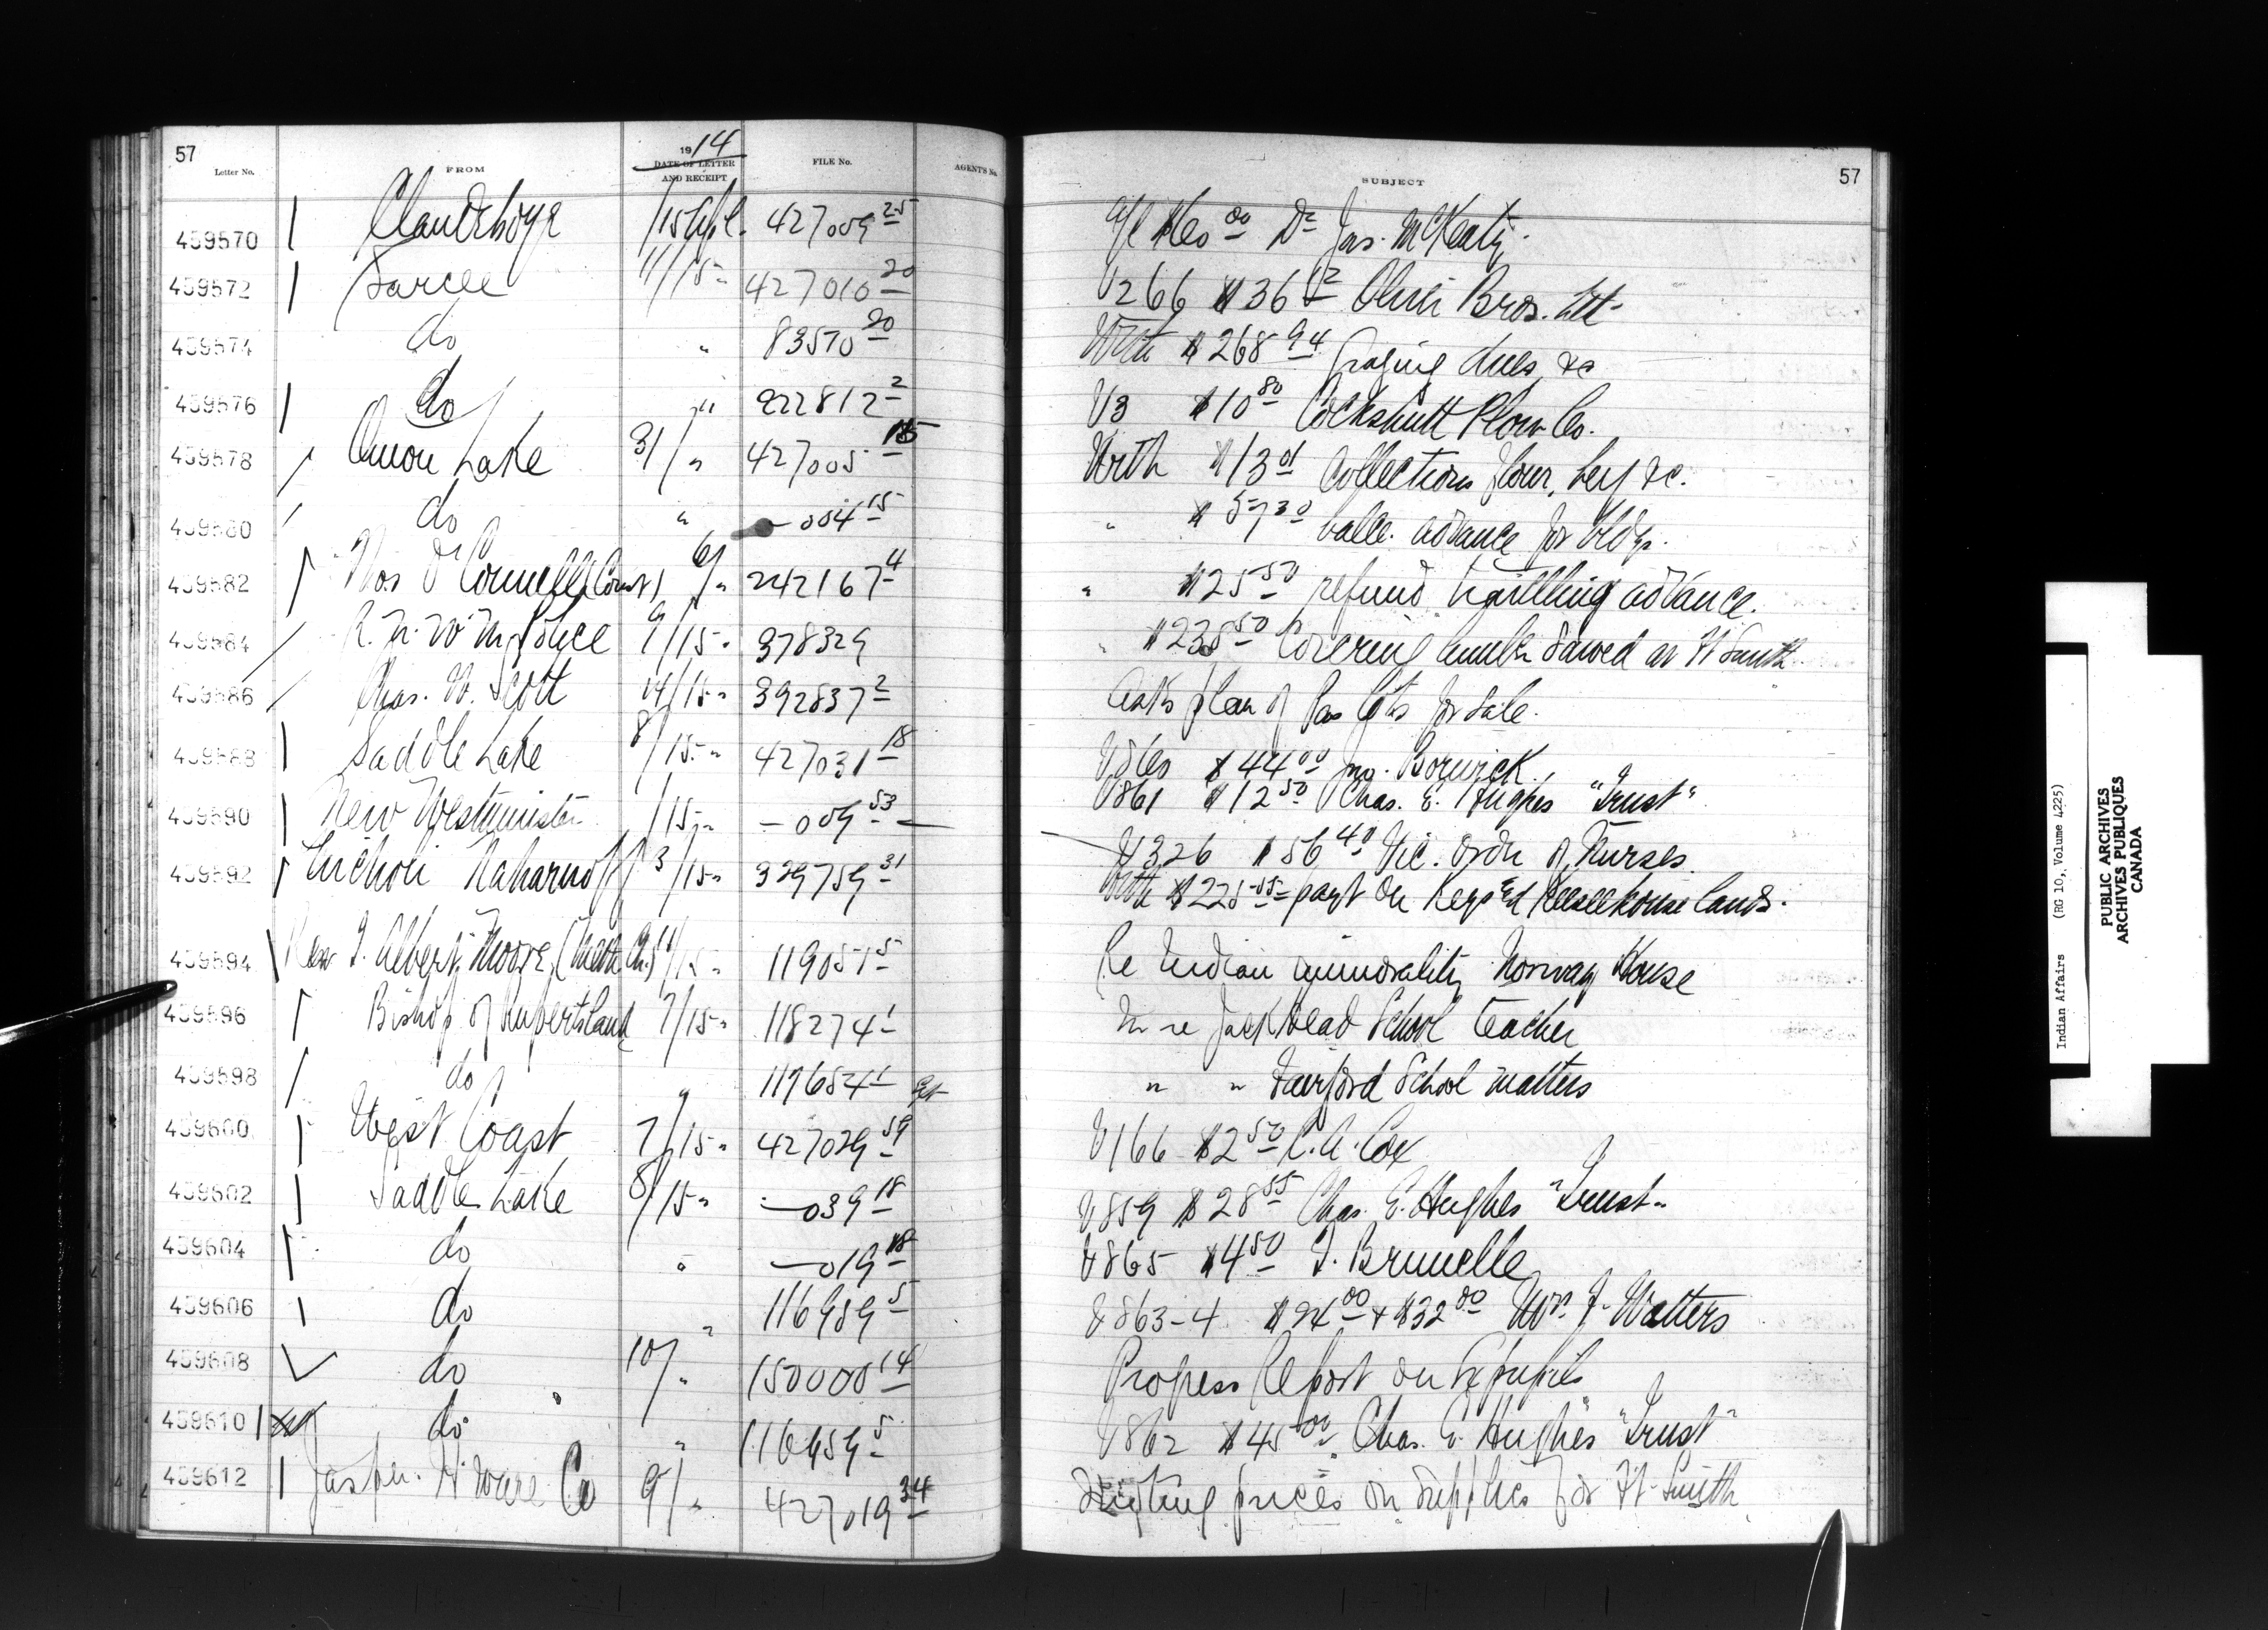 57
1914
Letter No. FROM DATE OF LETTER AND RECEIPT FILE No. AGENT'S No. SUBJECT
57
459570 Clandeboye /15 Apl. 427009 25 Dr Jas. McKenty.
459572 Sarcee 11/15 " 427010 20 V266 $36 12 Bros. Ltd
459574 do " 83570 20 With $268 94 grazing dues &c
459576 do " 222812 2 V3 $10 80 Cockshutt Plow Co.
459578 Onion Lake 31/ " 427005 15 With $13 01 Collections flour, beef &c.
459580 do " — 004 15 " $57 30 balce. advance for bldgs.
459582 Thos. O'Connell (Const) 6/ " 242167 4 " $25 50 refund travelling advance.
459584 R. N. W. M. Police 9/15 " 378329 " $238 50 Covering lumber sawed at Ft Smith
459586 Chas. W. Scott 14/15 " 392837 2 Asks plan of Pas lots for sale.
459588 Saddle Lake 8/15 " 427031 18 $44 00 Jno. Borwick.
V861 $12 50 Chas. E. Hughes "Trust"
459590 New Westminster /15 " — 009 53 — V326 $56 40 Vic. Order of Nurses.
459592 3/15 " 329759 31 With $225 55 payt on Keys & Keeseekouse lands.
459594 Rev T. Albert Moore, (Meth. Ch.) 11/15 " 119051 5 Re Indian immorality Norway House
459596 Bishop of Rupertsland 7/15 " 118274 1 In re Jackhead School teacher
459598 do " 117684 1 " " Fairford School matters
459600 West Coast 7/15 " 427029 59 V166 $2 50 C. A. Cox
459602 Saddle Lake 8/15 " — 039 18 V859 $28 55 Chas. E. Hughes "Trust"
459604 do " — 019 18 V865 $4 50 J. Brunelle
459606 do " 116959 5 V863-4 $24 00 + $32 00 Wm. J. Watters
459608 do 10/ " 150000 14 Progress Report on Ex pupils
459610 do " 116959 5 V862 $45 00 Chas. E. Hughes "Trust"
459612 Jasper H'ware Co 9/ " 427019 34 Quoting prices on supplies for Ft. Smith
Indian Affairs (RG 10, Volume 4225)
PUBLIC ARCHIVES
ARCHIVES PUBLIQUES
CANADA